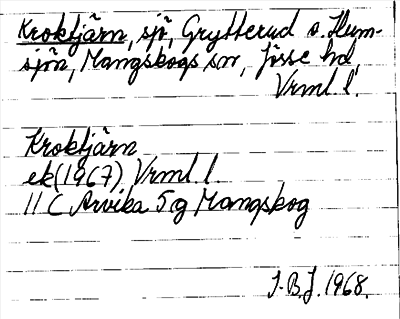 Kroktjärn, sjö, Grytterud o. Hum-
sjön, Mangskogs sn, Jösse hd,
Vrml l.
Kroktjärn
ek (1967) Vrml l
11 C Arvika 5 g Mangskog
I.B.J. 1968.